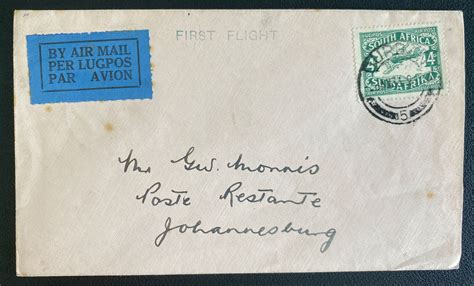 BY AIR MAIL
PER LUGPOS
PAR AVION
FIRST FLIGHT
SOUTH AFRICA
4
AFRIKA
5
Mr Gw. Morris
Poste Restante
Johannesburg